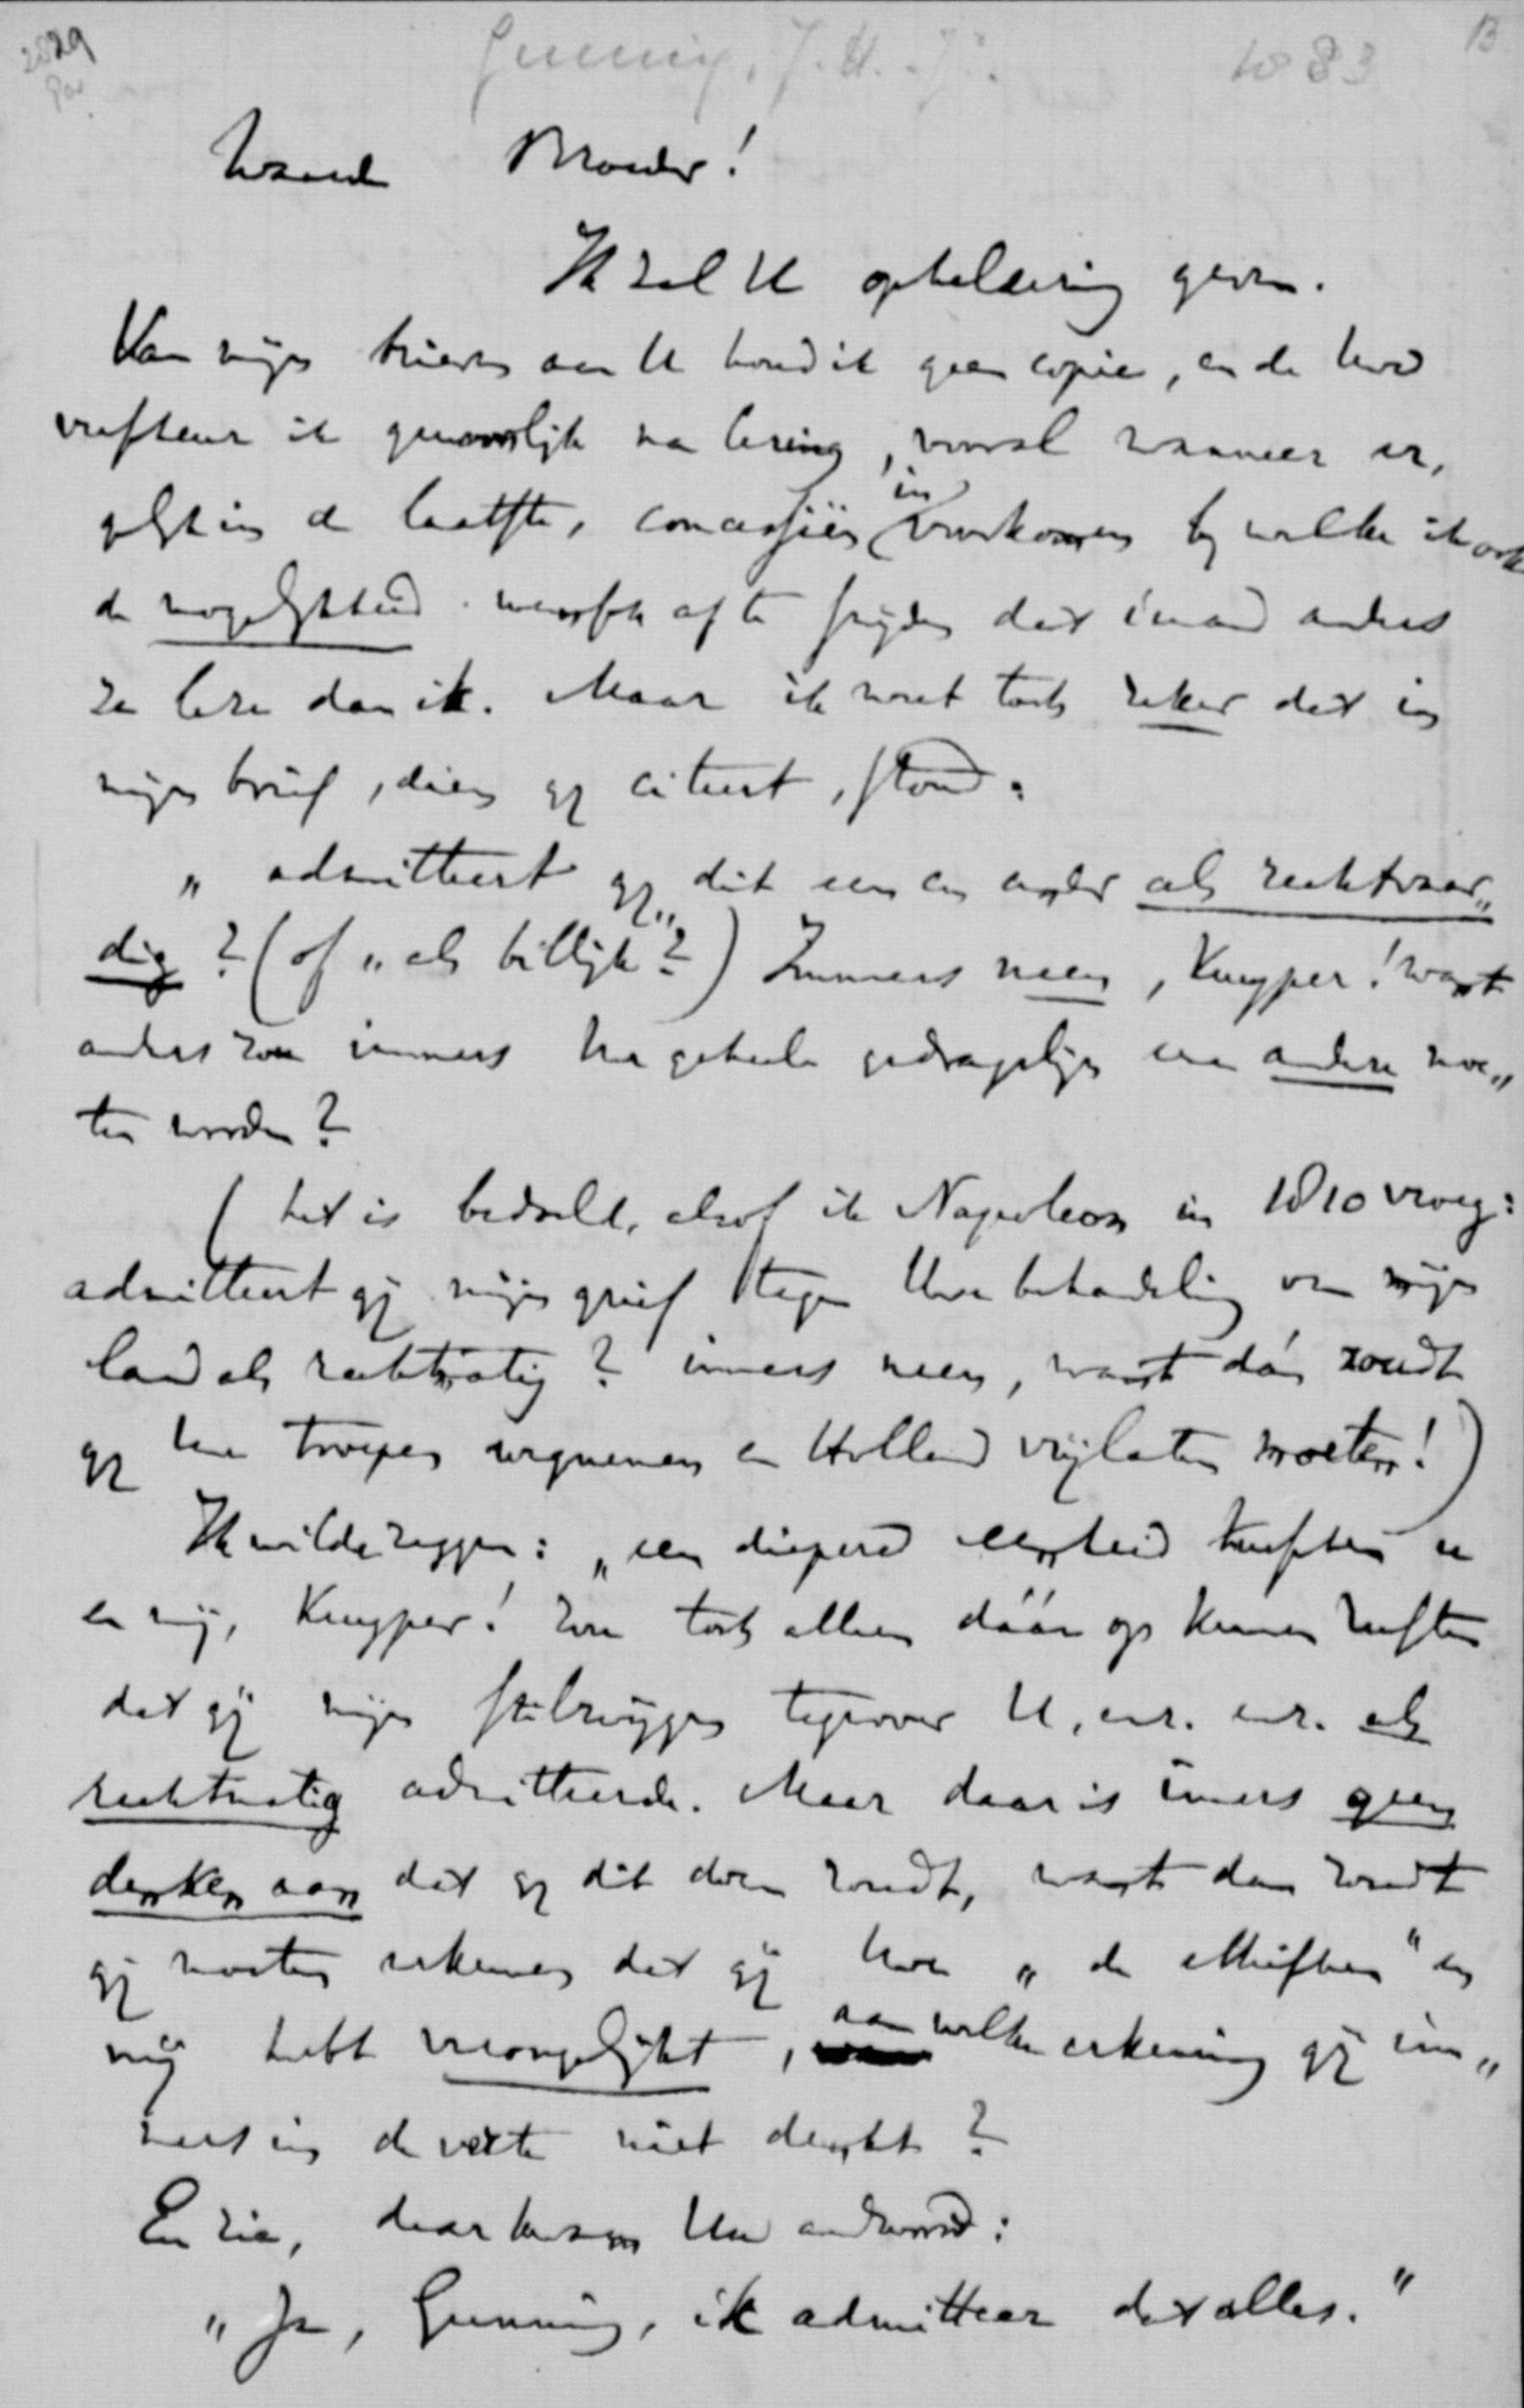 2029
Gunning, J.H. Jr.
1883
B
Waarde Broeder!
Ik zal U opheldering geven.
Van mijn brieven aan U houd ik geen copie, en de Uwe
verscheur ik gewoonlijk na lezing, vooral wanneer er,
gelijk in de laatste, concessiën in voorkomen bij welke ik ook
de mogelijkheid wensch af te snijden dat iemand anders
ze leze dan ik. Maar ik weet toch zeker dat in
mijn brief, dien gij citeert, stond:
„admitteert gij dit een en ander als rechtvaar„
dig? (of „als billijk"?) Immers neen, Kuyper! want
anders zou immers Uw geheele gedragslijn een andere moe„
ten worden?
(het is bedoeld, alsof ik Napoleon in 1810 vroeg:
admitteert gij mijn grief tegen Uwe behandeling van mijn
land als rechtmatig? immers neen, want dán zoudt
gij Uw troepen wegnemen en Holland vrijlaten moeten!)
Ik wilde zeggen: „een diepere eenheid tusschen U
en mij, Kuyper! zou toch alleen dáár op kunnen rusten
dat gij mijn stilzwijgen tegenover U, enz. enz. als
rechtmatig admitteerde. Maar daar is immers geen
denken aan dat gij dit doen zoudt, want dan zoudt
gij moeten erkennen dat gij Uwe „de Misstren" en
mij hebt verongelijkt, aan welke erkenning gij im„
mers in de verte niet denkt?
En zie, daar kwam Uw antwoord:
„Ja, Gunning, ik admitteer dat alles."